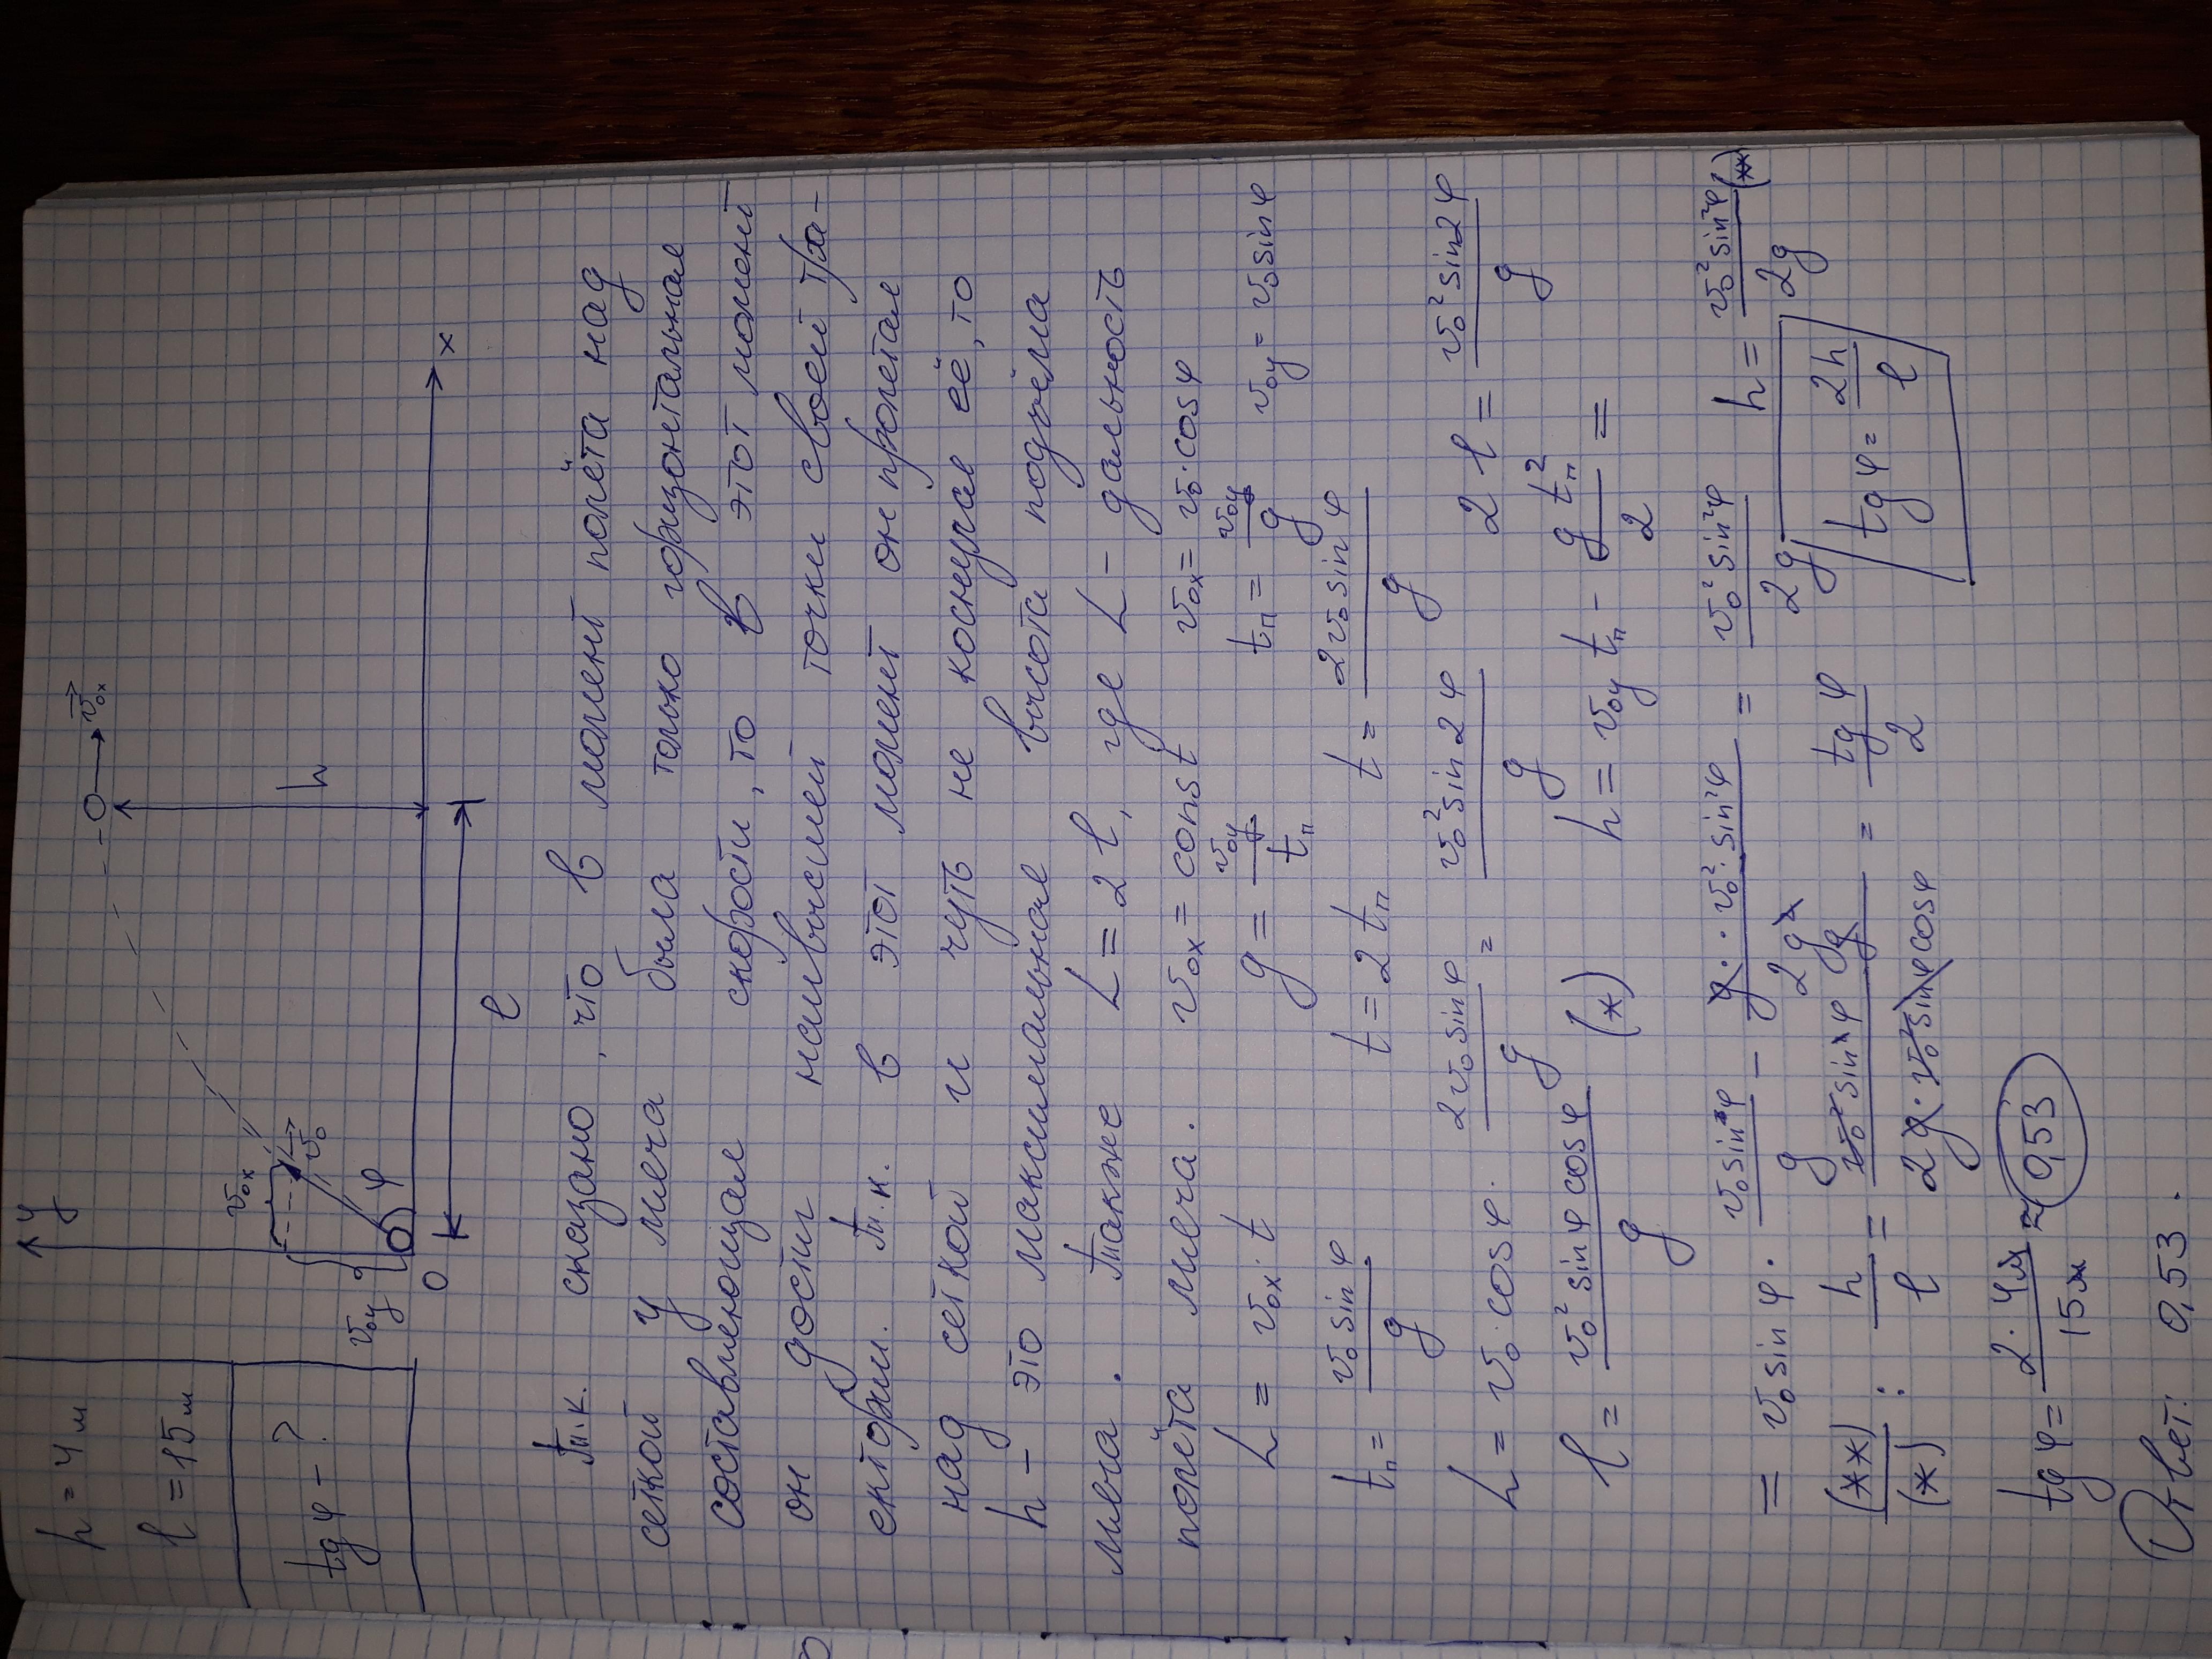 h = 4 м
l = 15 м
tg φ - ?
y
v₀ₓ
v₀
v₀y
φ
0
h
v₀ₓ
x
l
Т.к. сказано, что в момент полёта над
сеткой у мяча была только горизонтальная
составляющая скорости, то в этот момент
он достиг наивысшей точки своей тра-
ектории. Т.к. в этот момент он пролетал
над сеткой и чуть не коснулся её, то
h - это максимальная высота подъёма
мяча. Также L = 2 l, где L - дальность
полёта мяча. v₀ₓ = const v₀ₓ = v₀ · cos φ
L = v₀ₓ · t g = v₀y / tп tп = v₀y / g v₀y = v₀ sin φ
tп = v₀ sin φ / g t = 2 tп t = 2 v₀ sin φ / g
L = v₀ · cos φ · 2 v₀ sin φ / g = v₀² sin 2φ / g 2 l = v₀² sin 2φ / g
l = v₀² sin φ cos φ / g (*) h = v₀y tп - g tп² / 2 =
= v₀ sin φ · v₀ sin φ / g - g · v₀² · sin² φ / 2 g² = v₀² sin² φ / 2 g h = v₀² sin² φ / 2 g (**)
(**) / (*) : h / l = v₀² sin² φ g / 2 g · v₀² sin φ cos φ = tg φ / 2 tg φ = 2 h / l
tg φ = 2 · 4 м / 15 м ≈ 0,53
Ответ: 0,53.